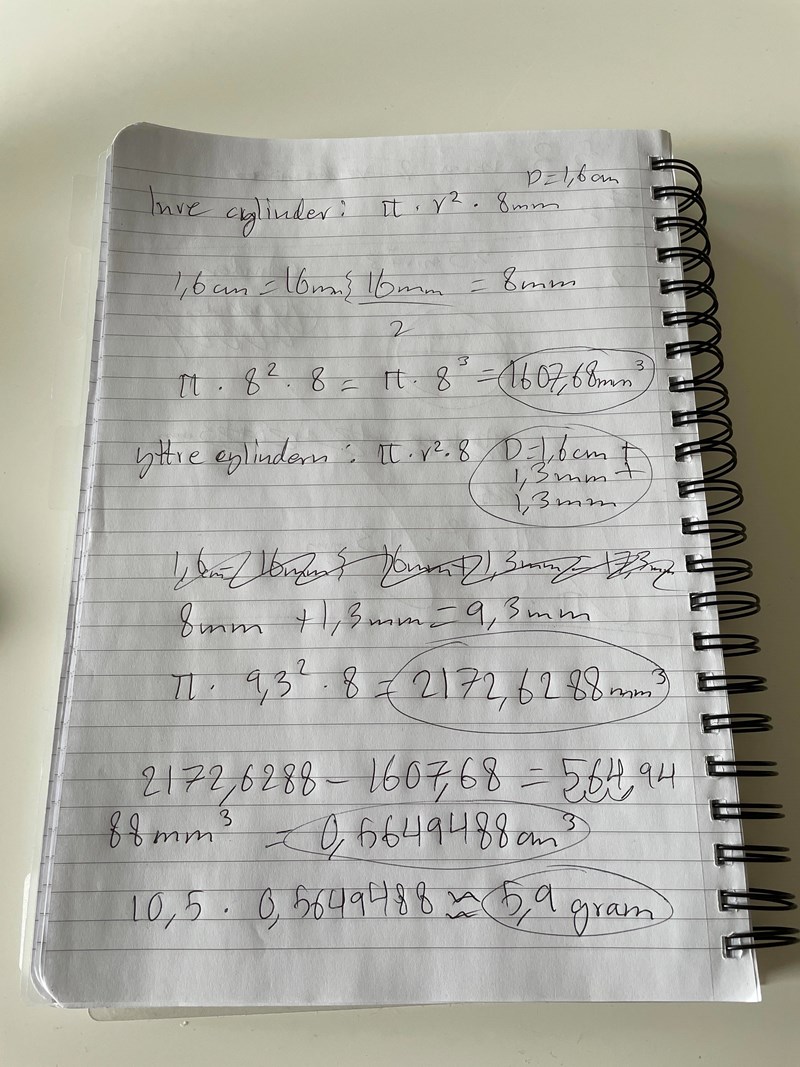 D=1,6cm
Inre cylinder: π · r² · 8mm
1,6cm = 16mm; 16mm/2 = 8mm
π · 8² · 8 = π · 8³ = 1607,68mm³
yttre cylindern: π · r² · 8 D=1,6cm +
1,3mm +
1,3mm
8mm + 1,3mm = 9,3mm
π · 9,3² · 8 = 2172,6288mm³
2172,6288 – 1607,68 = 564,94
88mm³ = 0,5649488cm³
10,5 · 0,5649488 ≈ 5,9 gram